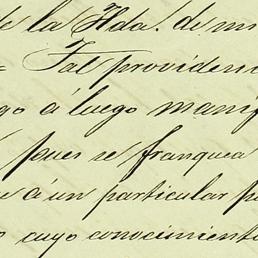 de la Hda. de mi
= Tal providenc
go á luego manif
pues se franquea
e a un particular p
o cuyo conocimient